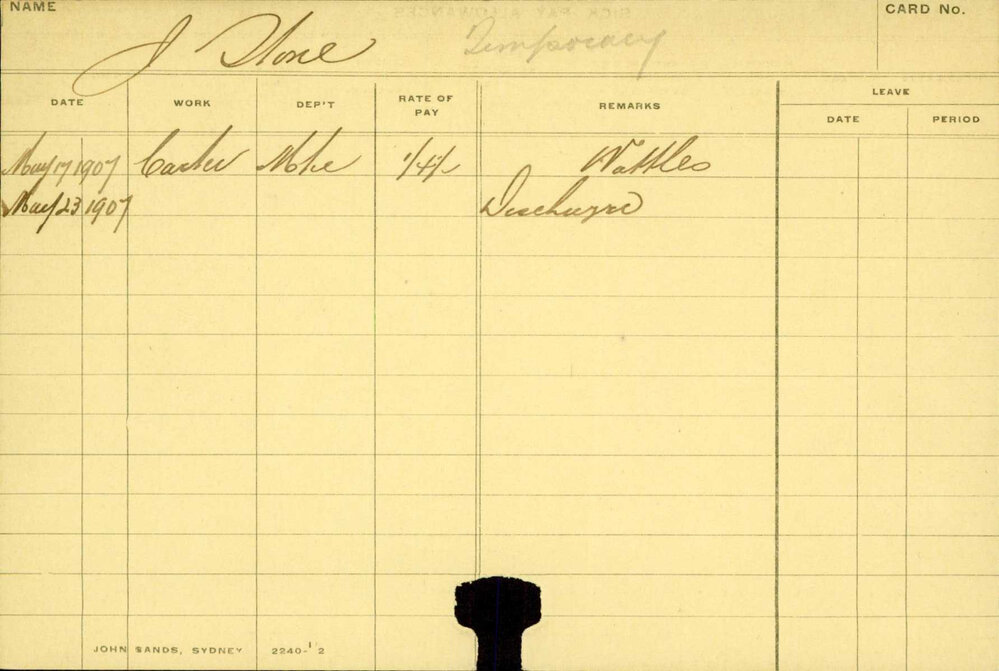 NAME
CARD No.
J Stone
Temporary
DATE WORK DEP'T RATE OF PAY REMARKS LEAVE
DATE PERIOD
May 17 1907 Carter 1/4/- Wattles
May 23 1907 Discharge
JOHN SANDS, SYDNEY 2240-1 2